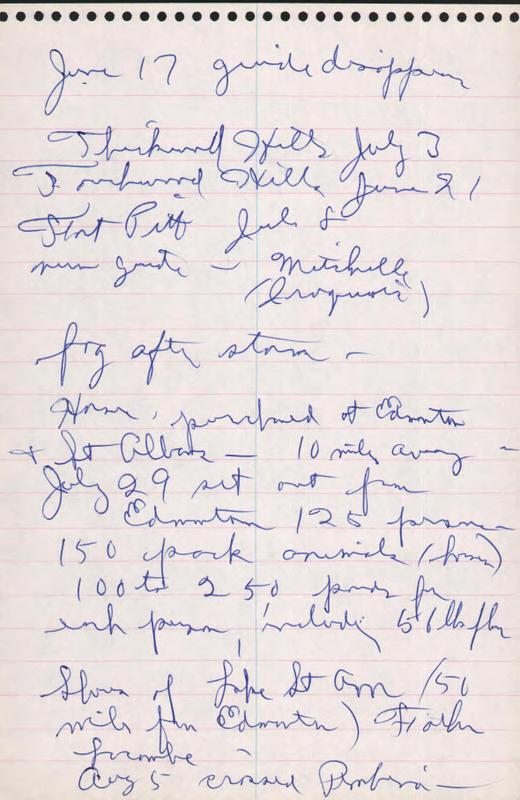 June 17 guide disappears
Thickwood Hills July 3
Touchwood Hills June 21
Fort Pitt July 8
new guide - Mitchelle
(Iroquois)
fog after storm -
Horses, purchased at Edmonton
+ St Albert - 10 miles away -
July 29 set out from
Edmonton 125 persons
150 pack animals (horses)
100 to 250 pounds for
each person, including 51 lbs flour
Shores of Lake St Ann (50
miles from Edmonton) Father
Lacombe -
Aug 5 crossed Pembina -